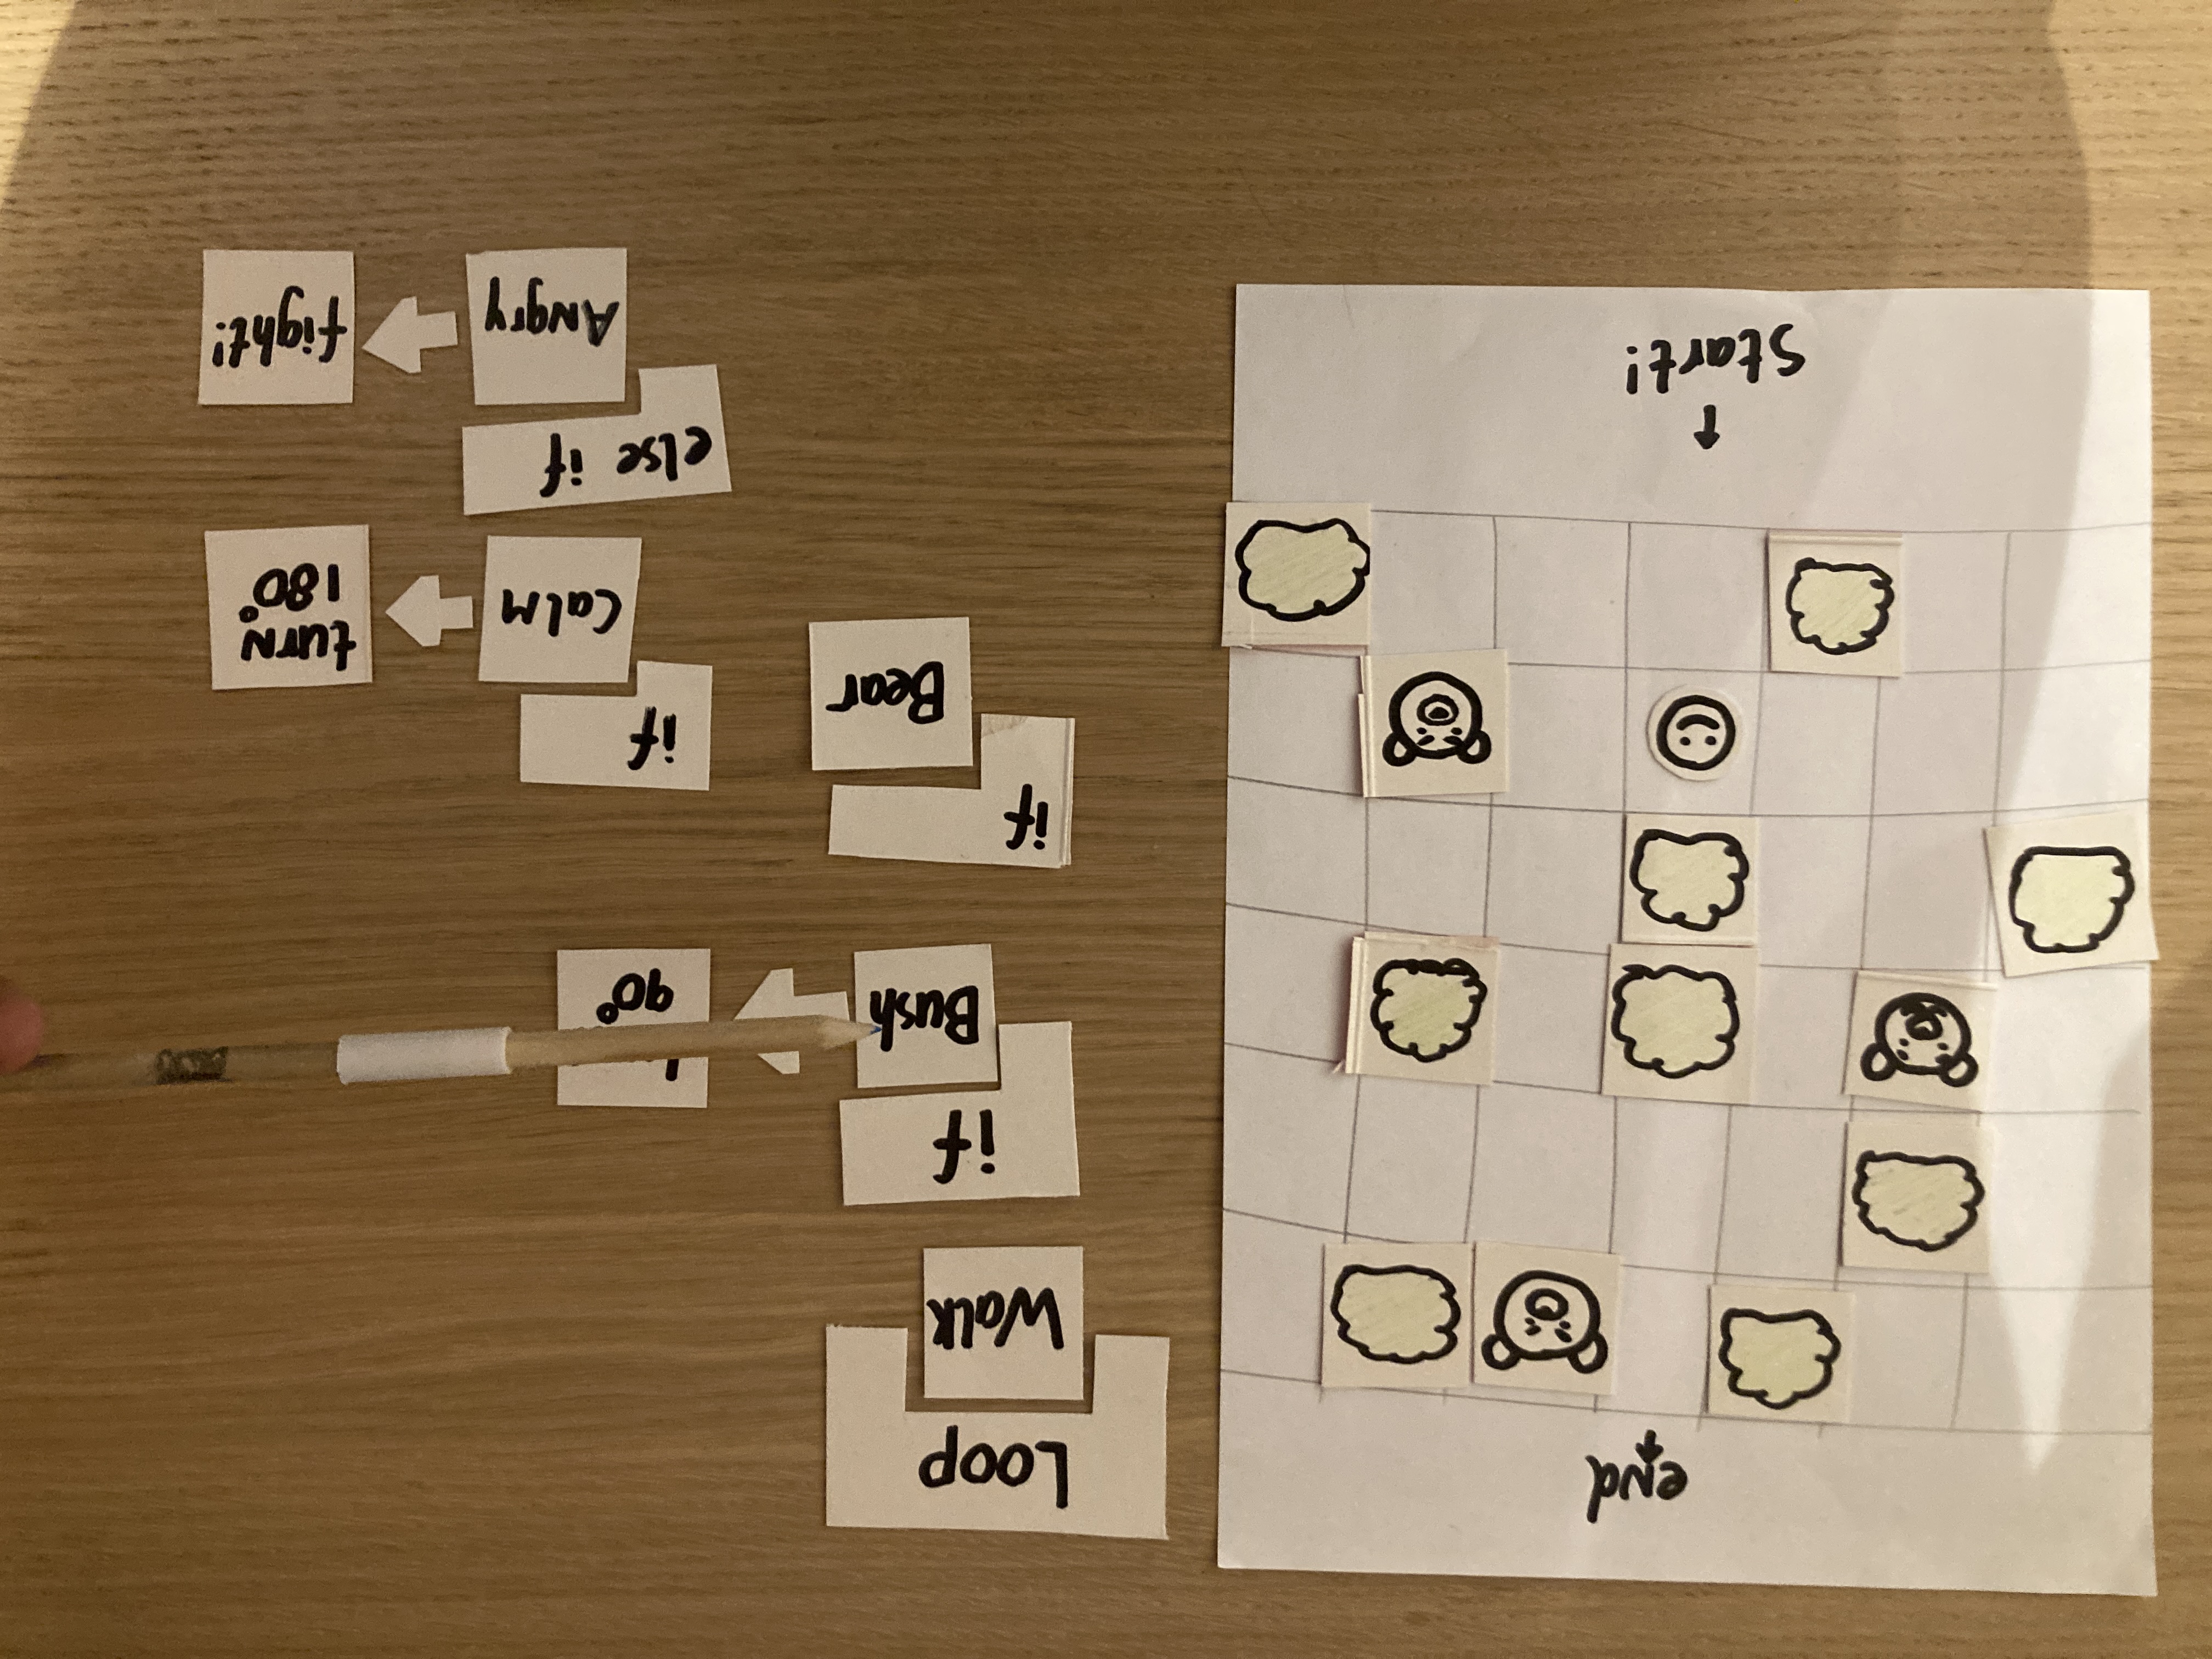 end
Start!
Loop
Walk
if
Bush
90°
if
Bear
if
Calm
turn
180°
else if
Angry
fight!